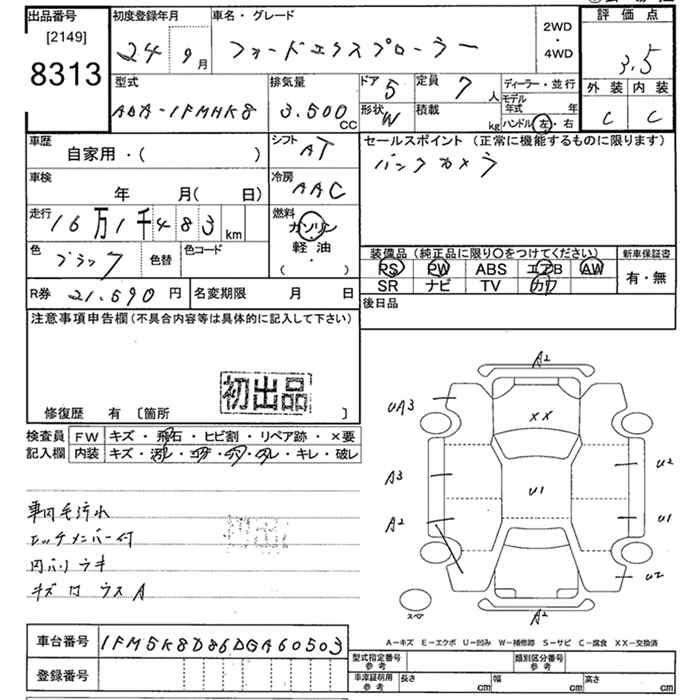 出品番号 初度登録年月 車名・グレード 2WD・4WD 評価点
[2149]
8313 24 9月 フォードエクスプローラー 3.5
型式 排気量 ドア 5 定員 7人 ディーラー・並行 外装 内装
ADA-1FMHK8 3.500cc 形状 W 積載 kg モデル年式 年 ハンドル 左・右 C C
車歴 シフト セールスポイント (正常に機能するものに限ります)
自家用・( ) AT バックカメラ
車検 冷房
年 月( 日) AAC
走行 燃料
16万1千483km ガソリン
色 ブラック 色替 色コード 軽油・( )
装備品(純正品に限り○をつけてください) 新車保証書
PS PW ABS エアB AW 有・無
SR ナビ TV カワ
R券 21.590円 名変期限 月 日 後日品
注意事項申告欄(不具合内容等は具体的に記入して下さい)
初出品
修復歴 有 [箇所 ]
検査員 FW キズ・飛石・ヒビ割・リペア跡・×要
記入欄 内装 キズ・汚れ・コゲ・・スレ・キレ・破レ
車内毛汚れ
ヒッチメンバー付
キズ
A2
UA3
XX
A3
U2
U1
A2
U1
U2
A2
スペア
A-キズ E-エクボ U-凹み W-補修跡 S-サビ C-腐食 XX-交換済
車台番号 1FM5K8D86DGA60503
登録番号
型式指定番号 参考 類別区分番号 参考
車庫証明用 参考 長さ cm 幅 cm 高さ cm